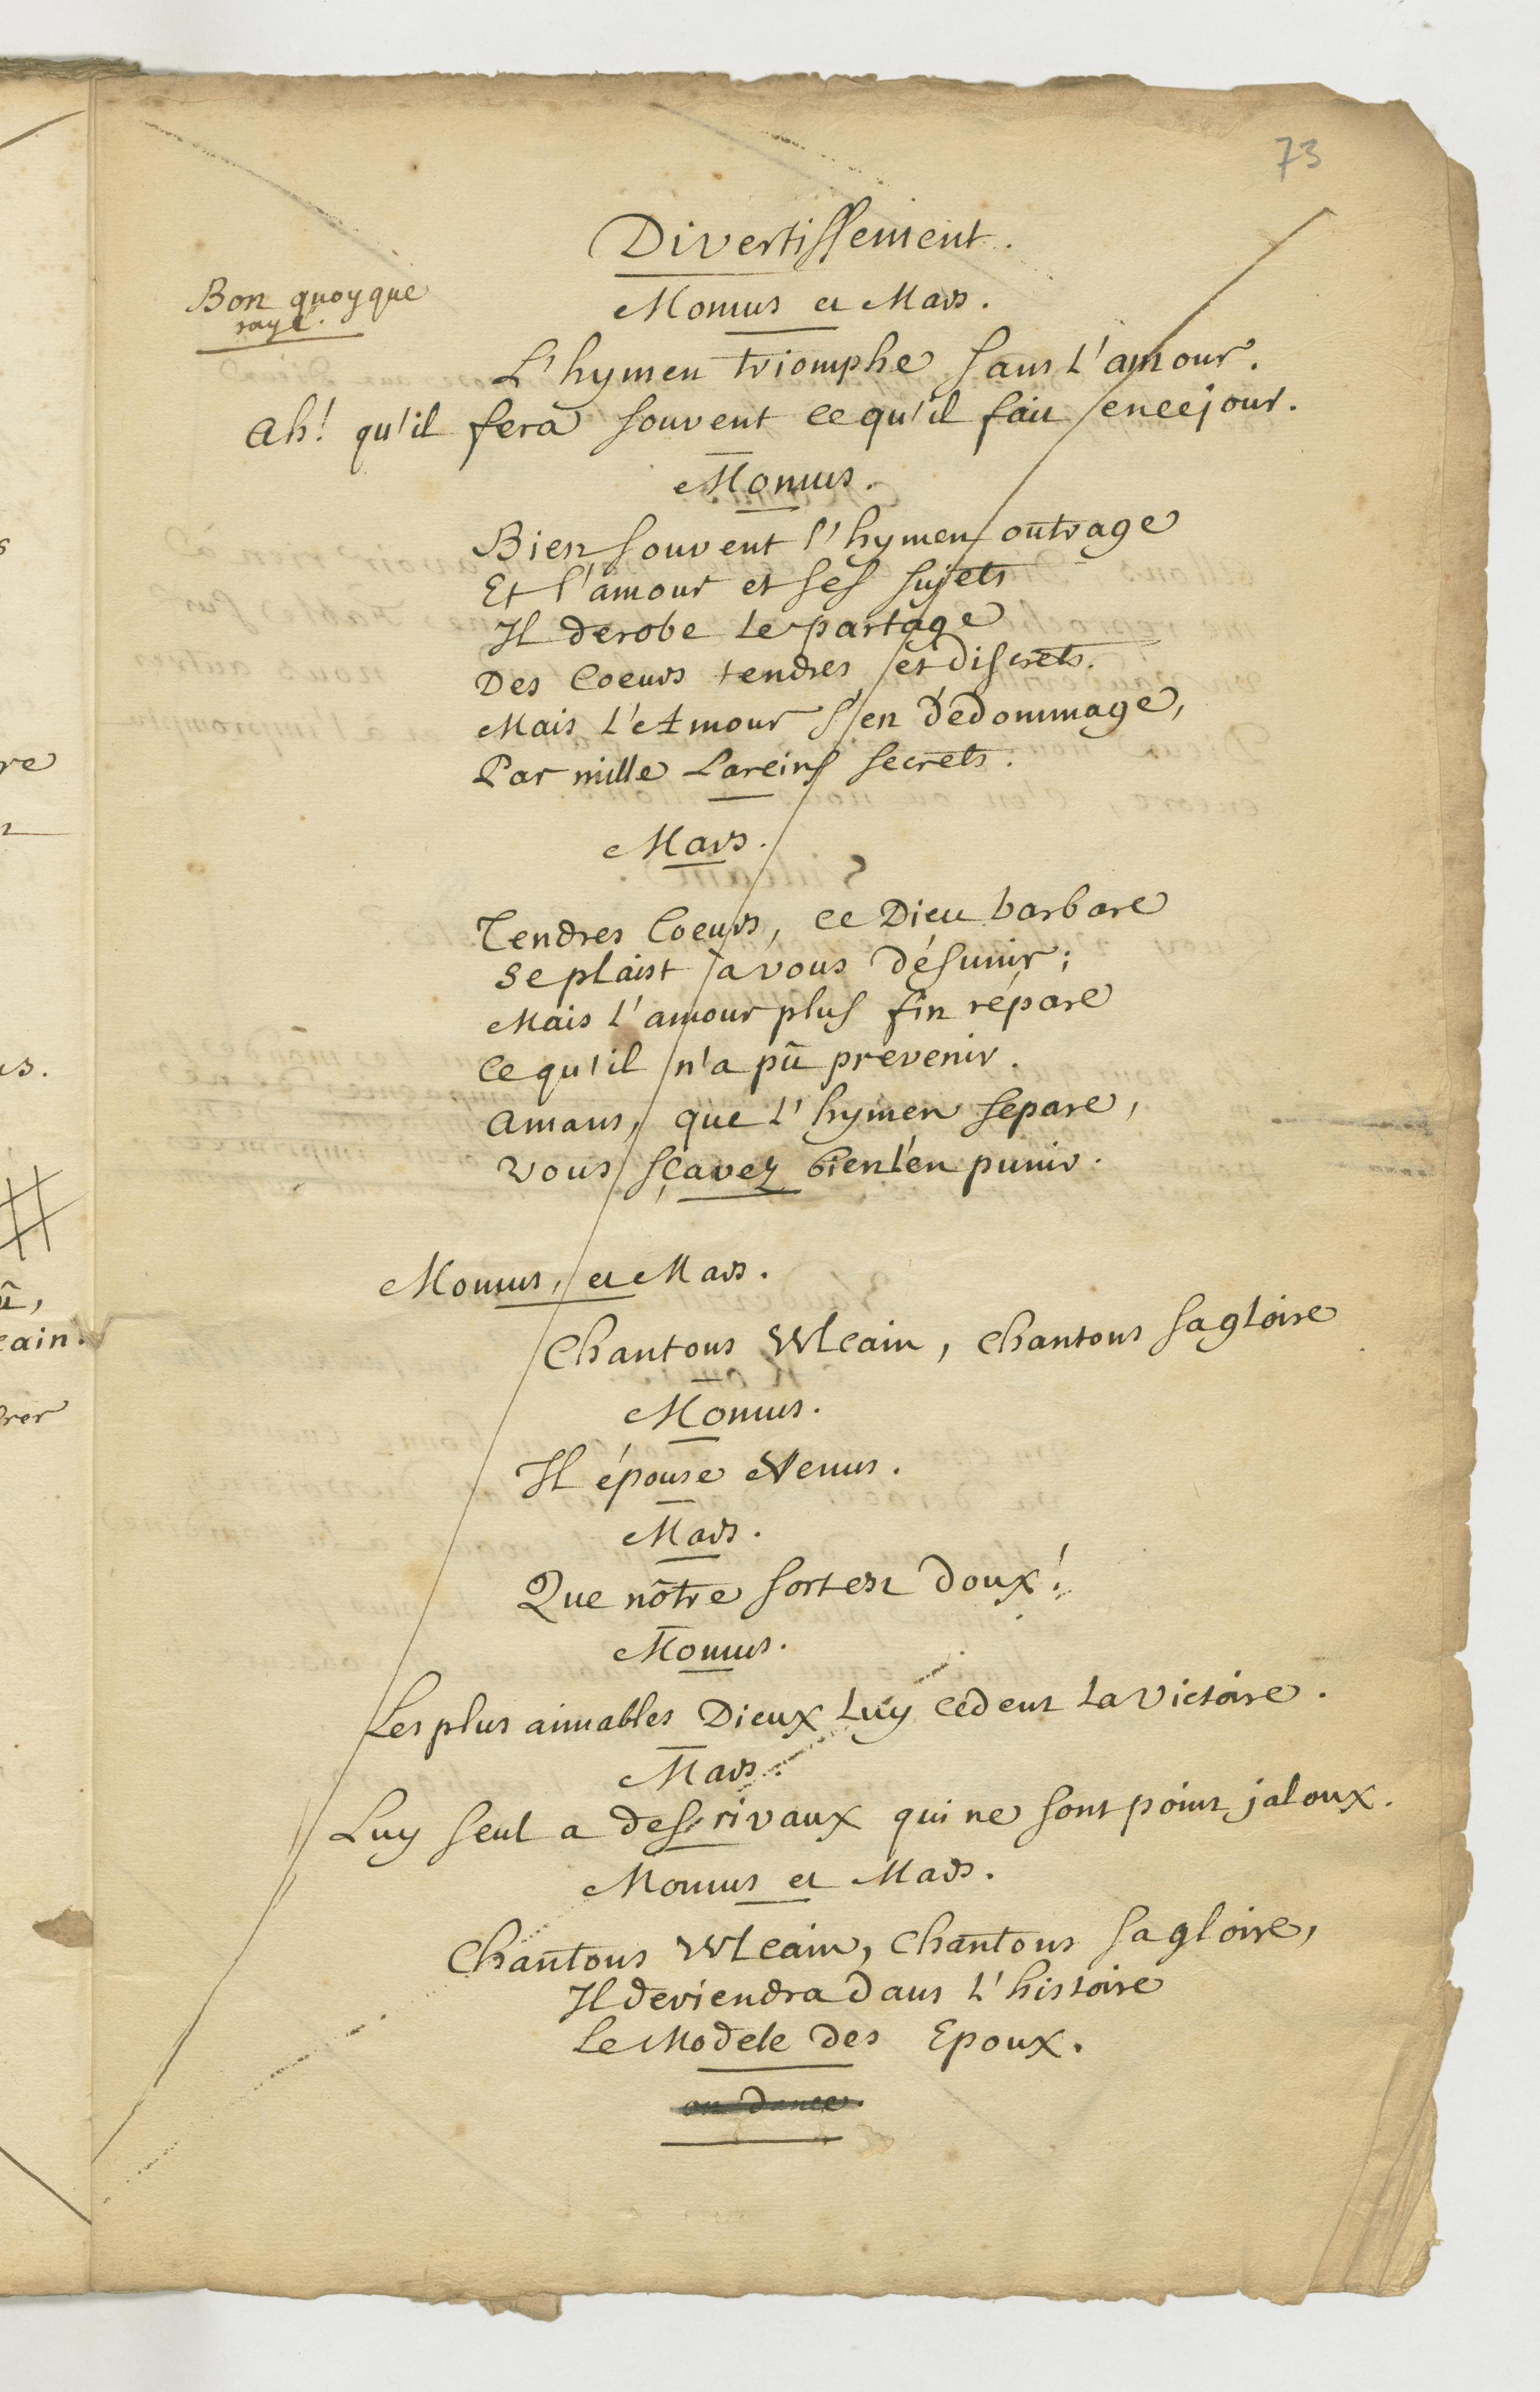 73
Divertissement.
Bon quoyque
rayé.
Momus et Mars.
L'hymen triomphe sans l'amour.
Ah! qu'il fera souvent ce qu'il fait en ce jour.
Momus.
Bien souvent l'hymen outrage
Et l'amour et ses sujets
Il derobe le partage
Des Coeurs tendres et discrets.
Mais L'Amour s'en dédommage,
Par mille Larcins secrets.
Mars.
Tendres Coeurs, ce Dieu barbare
Se plaist a vous désunir;
Mais l'amour plus fin répare
Ce qu'il n'a pû prevenir.
Amans, que l'hymen separe,
Vous sçavez bien l'en punir.
Momus, et Mars.
Chantons Vulcain, chantons sa gloire
Momus.
Il épouse Venus.
Mars.
Que nôtre sort est doux!
Momus.
Les plus aimables Dieux Luy cedent La Victoire.
Mars.
Luy seul a des rivaux qui ne sont point jaloux.
Momus et Mars.
Chantons Vulcain, Chantons sa gloire,
Il deviendra dans L'histoire
Le Modele des Epoux.
on dance.
re
us.
û,
cain.
rer